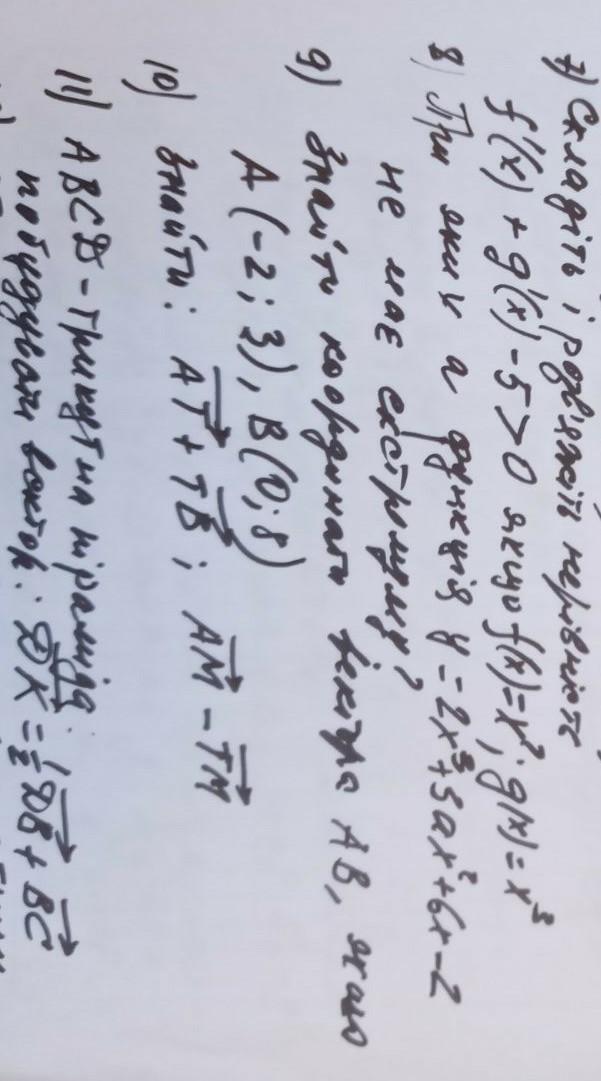 7) Складіть і розв'яжіть нерівність
f'(x) + g'(x) - 5 > 0 якщо f(x) = x², g(x) = x³
8) При яких a функція y = 2x³ + 3ax² + 6x - 2
не має екстремуму?
9) Знайти координати вектора AB, якщо
A (-2; 3), B (0; 8)
10) Знайти: AT + TB ; AM - TM
11) ABCD - трикутна піраміда.
побудувати вектор: DX = ½ DB + BC